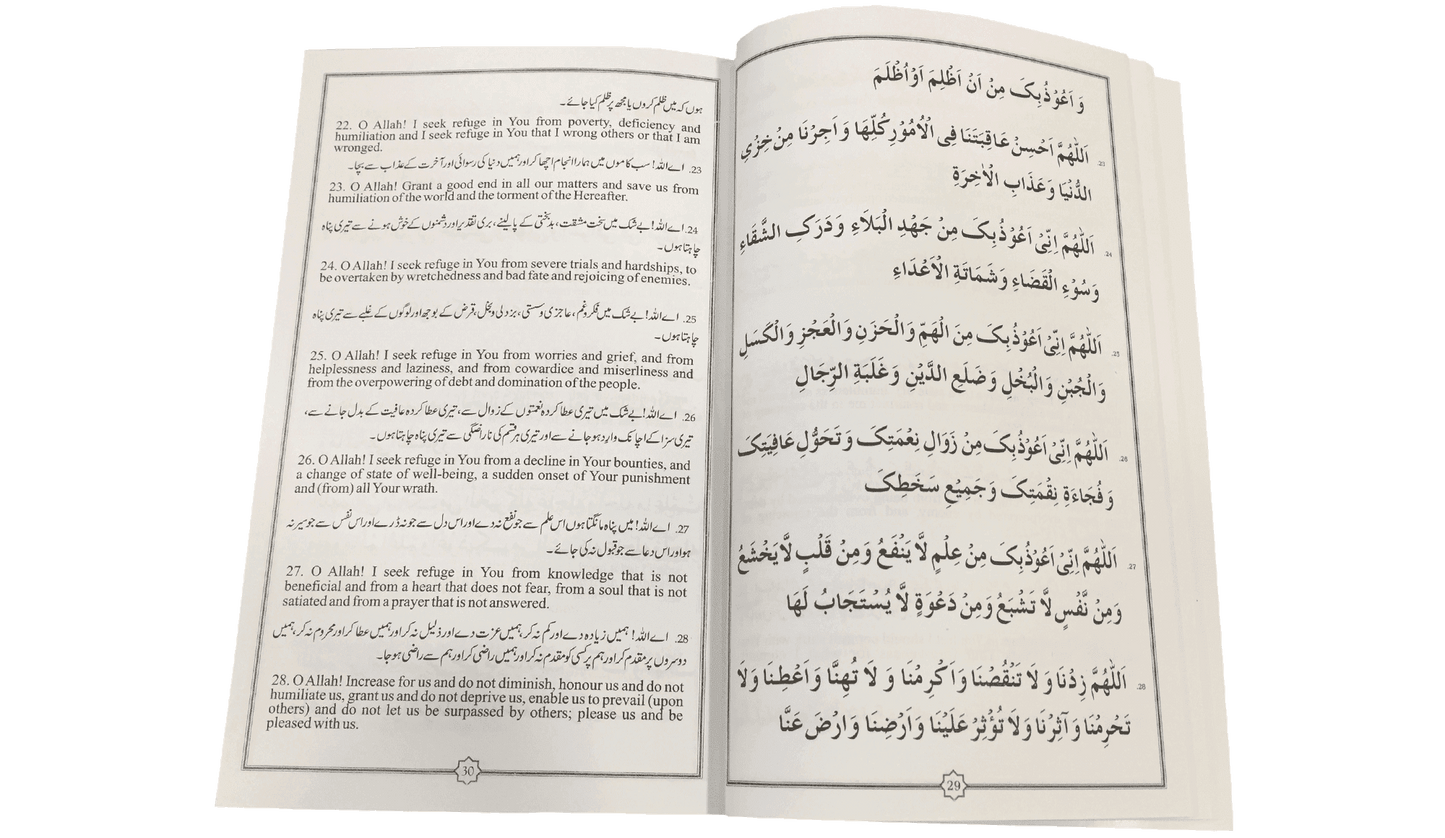 وَ اَعُوْذُبِکَ مِنْ اَنْ اَظْلِمَ اَوْ اُظْلَمَ
23. اَللّٰهُمَّ اَحْسِنْ عَاقِبَتَنَا فِی الْاُمُوْرِ کُلِّهَا وَ اَجِرْنَا مِنْ خِزْیِ
الدُّنْیَا وَ عَذَابِ الْاٰخِرَةِ
24. اَللّٰهُمَّ اِنِّیْ اَعُوْذُبِکَ مِنْ جَهْدِ الْبَلَاءِ وَ دَرَکِ الشَّقَاءِ
وَسُوْءِ الْقَضَاءِ وَشَمَاتَةِ الْاَعْدَاءِ
25. اَللّٰهُمَّ اِنِّیْ اَعُوْذُبِکَ مِنَ الْهَمِّ وَالْحَزَنِ وَالْعَجْزِ وَالْکَسَلِ
وَالْجُبْنِ وَالْبُخْلِ وَ ضَلَعِ الدَّیْنِ وَ غَلَبَةِ الرِّجَالِ
26. اَللّٰهُمَّ اِنِّیْ اَعُوْذُبِکَ مِنْ زَوَالِ نِعْمَتِکَ وَ تَحَوُّلِ عَافِیَتِکَ
وَ فُجَاءَةِ نِقْمَتِکَ وَ جَمِیْعِ سَخَطِکَ
27. اَللّٰهُمَّ اِنِّیْ اَعُوْذُبِکَ مِنْ عِلْمٍ لَّا یَنْفَعُ وَمِنْ قَلْبٍ لَّا یَخْشَعُ
وَ مِنْ نَّفْسٍ لَّا تَشْبَعُ وَمِنْ دَعْوَةٍ لَّا یُسْتَجَابُ لَهَا
28. اَللّٰهُمَّ زِدْنَا وَ لَا تَنْقُصْنَا وَ اَکْرِمْنَا وَ لَا تُهِنَّا وَ اَعْطِنَا وَلَا
تَحْرِمْنَا وَ آثِرْنَا وَلَا تُؤْثِرْ عَلَیْنَا وَ اَرْضِنَا وَ ارْضَ عَنَّا
29
ہوں کہ میں ظلم کروں یا مجھ پر ظلم کیا جائے۔
22. O Allah! I seek refuge in You from poverty, deficiency and
humiliation and I seek refuge in You that I wrong others or that I am
wronged.
23. اے اللہ! سب کاموں میں ہمارا انجام اچھا کر اور ہمیں دنیا کی رسوائی اور آخرت کے عذاب سے بچا۔
23. O Allah! Grant a good end in all our matters and save us from
humiliation of the world and the torment of the Hereafter.
24. اے اللہ! بے شک میں سخت مشقت، بدبختی کے پا لینے، بری تقدیر اور دشمنوں کے خوش ہونے سے تیری پناہ
چاہتا ہوں۔
24. O Allah! I seek refuge in You from severe trials and hardships, to
be overtaken by wretchedness and bad fate and rejoicing of enemies.
25. اے اللہ! بے شک میں فکر و غم، عاجزی و سستی، بزدلی و بخل، قرض کے بوجھ اور لوگوں کے غلبے سے تیری پناہ
چاہتا ہوں۔
25. O Allah! I seek refuge in You from worries and grief, and from
helplessness and laziness, and from cowardice and miserliness and
from the overpowering of debt and domination of the people.
26. اے اللہ! بے شک میں تیری عطا کردہ نعمتوں کے زوال سے، تیری عطا کردہ عافیت کے بدل جانے سے،
تیری سزا کے اچانک وارد ہو جانے سے اور تیری ہر قسم کی ناراضگی سے تیری پناہ چاہتا ہوں۔
26. O Allah! I seek refuge in You from a decline in Your bounties, and
a change of state of well-being, a sudden onset of Your punishment
and (from) all Your wrath.
27. اے اللہ! میں پناہ مانگتا ہوں اس علم سے جو نفع نہ دے اور اس دل سے جو نہ ڈرے اور اس نفس سے جو سیر نہ
ہو اور اس دعا سے جو قبول نہ کی جائے۔
27. O Allah! I seek refuge in You from knowledge that is not
beneficial and from a heart that does not fear, from a soul that is not
satiated and from a prayer that is not answered.
28. اے اللہ! ہمیں زیادہ دے اور کم نہ کر، ہمیں عزت دے اور ذلیل نہ کر اور ہمیں عطا کر اور محروم نہ کر، ہمیں
دوسروں پر مقدم کر اور ہم پر کسی کو مقدم نہ کر اور ہمیں راضی کر اور ہم سے راضی ہو جا۔
28. O Allah! Increase for us and do not diminish, honour us and do not
humiliate us, grant us and do not deprive us, enable us to prevail (upon
others) and do not let us be surpassed by others; please us and be
pleased with us.
30